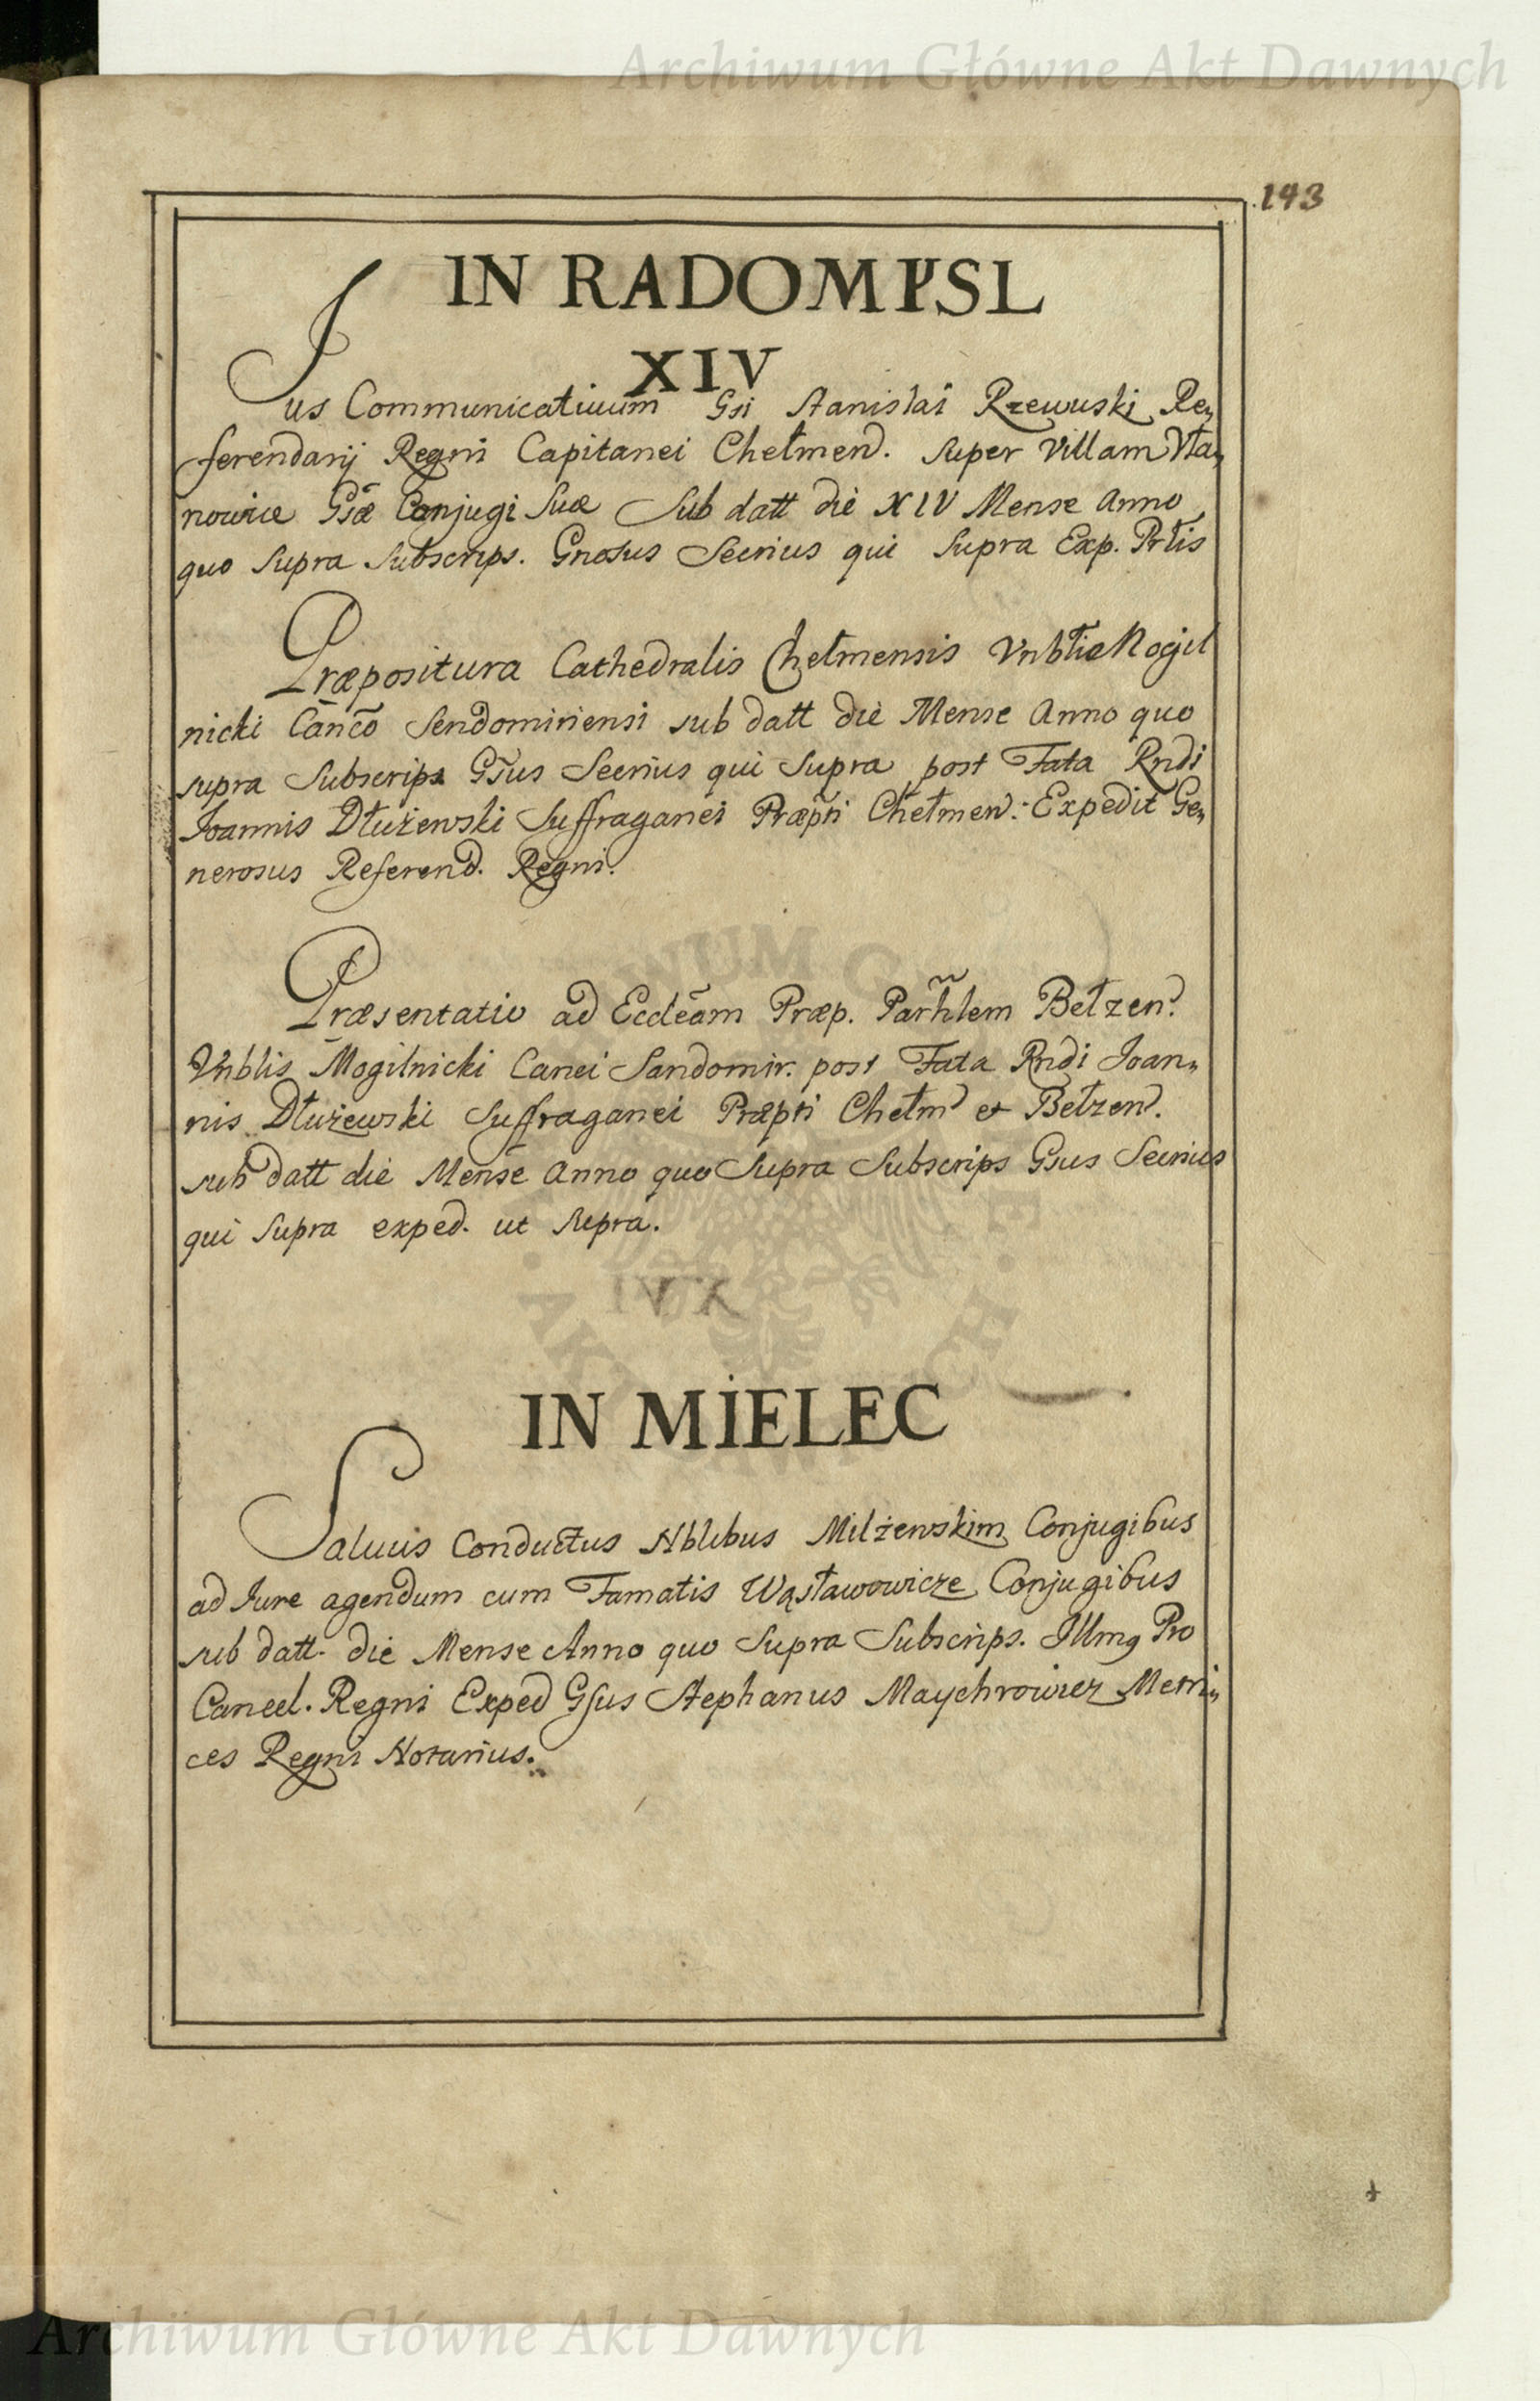 Archiwum Główne Akt Dawnych
143
IN RADOMYSL
XIV
Jus Communicatiuum Gsi Stanislai Rzewuski Re„
ferendarij Regni Capitanei Chełmen. super Villam Vła„
nowice Gsæ Conjugi Suæ Sub datt die XIV Mense Anno
quo supra subscrips. Gnosus Secrius qui supra Exp. Prtis
Præpositura Cathedralis Chełmensis Vnblis Mogil
nicki Canco Sendomiriensi sub datt die Mense Anno quo
supra Subscrips Gsus Secrius qui supra post Fata Rndi
Joannis Dłużewski Suffraganei Præpti Chełmen: Expedit Ge„
nerosus Referend. Regni.
Præsentatio ad Eccleam Præp. Parhlem Bełzen.
Vnblis Mogilnicki Canci Sandomir. post Fata Rndi Joan„
nis Dłużewski Suffraganei Præpti Chełm et Bełzen.
sub datt die Mense Anno quo supra Subscrips Gsus Secrius
qui supra exped. ut supra.
IN MIELEC
Saluus Conductus Nblibus Milżewskim Conjugibus
ad Jure agendum cum Famatis Wąsławowicze Conjugibus
sub datt. die Mense Anno quo supra Subscrips. Illmq Pro
Cancel. Regni Exped Gsus Stephanus Maychrowicz Metri„
ces Regni Notarius.
Archiwum Główne Akt Dawnych